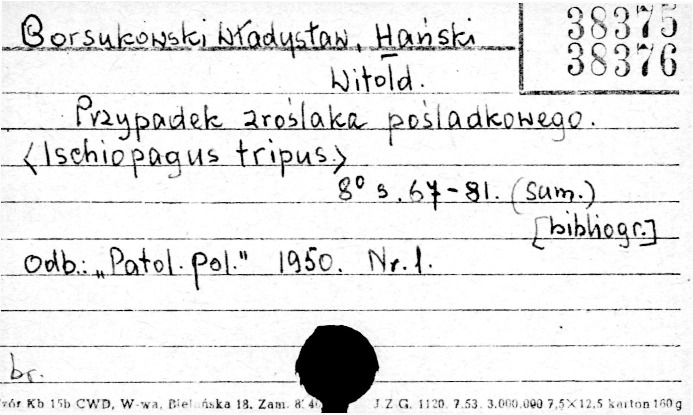 38375
38376
Borsukowski Władysław, Hański
Witold.
Przypadek zroślaka pośladkowego.
<Ischiopagus tripus.>
8° s. 67-81. (sum.)
[bibliogr.]
Odb.: „Patol. pol." 1950. Nr. 1.
br.
Kb 15b CWD, W-wa, Bielańska 18. Zam. J.Z.G. 1120. 7.53. 3.000.000 7,5×12,5 karton 160 g